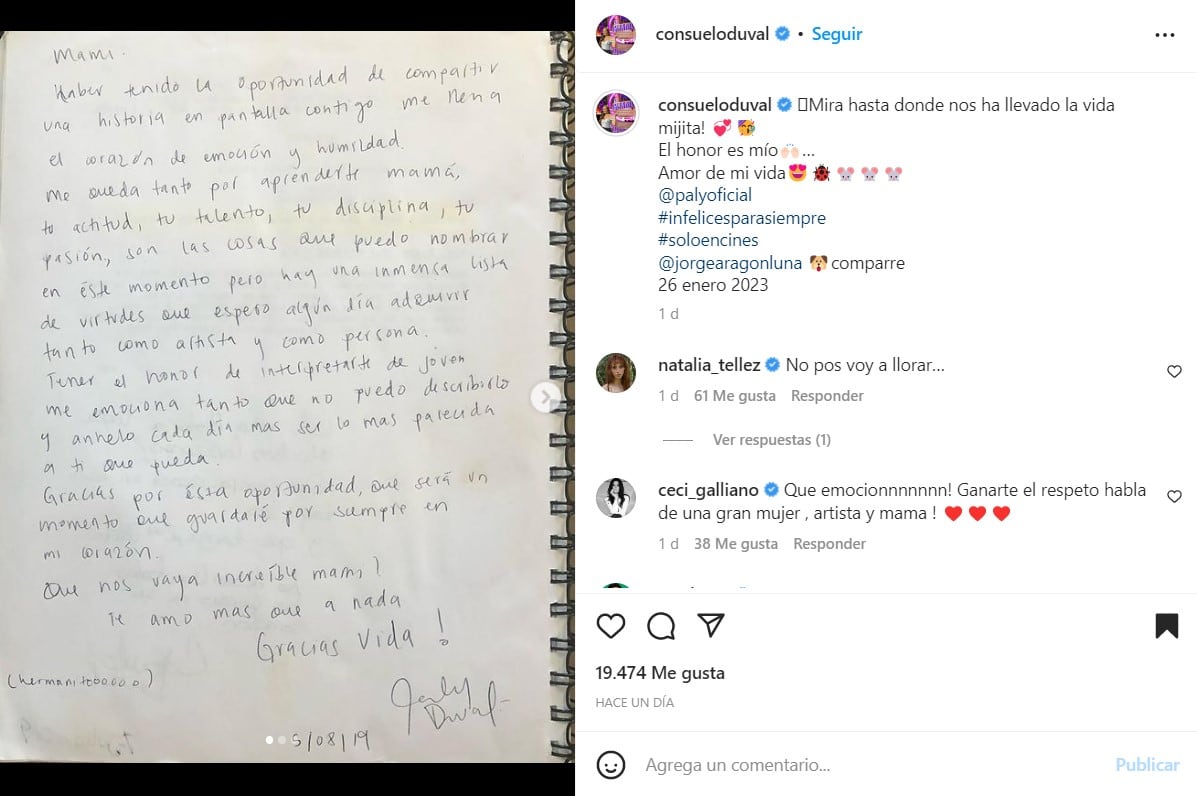 Mami.
Haber tenido la oportunidad de compartir
una historia en pantalla contigo me llena
el corazón de emoción y humildad.
Me queda tanto por aprenderte mamá,
tu actitud, tu talento, tu disciplina, tu
pasión, son las cosas que puedo nombrar
en éste momento pero hay una inmensa lista
de virtudes que espero algún día adquirir
tanto como artista y como persona.
Tener el honor de interpretarte de joven
me emociona tanto que no puedo describirlo
y anhelo cada día mas ser lo mas parecida
a ti que pueda.
Gracias por ésta oportunidad, que será un
momento que guardaré por siempre en
mi corazón.
Que nos vaya increíble mami!
Te amo mas que a nada
Gracias Vida!
(hermanitooooooo)
Duval
5/08/19
consueloduval • Seguir
consueloduval Mira hasta donde nos ha llevado la vida
mijita! 💞 🥳
El honor es mío🙌🏻...
Amor de mi vida😍 🐞 🐭 🐭 🐭
@palyoficial
#infelicesparasiempre
#soloencines
@jorgearagonluna 🐶comparre
26 enero 2023
1 d
natalia_tellez No pos voy a llorar...
1 d 61 Me gusta Responder
Ver respuestas (1)
ceci_galliano Que emocionnnnnnn! Ganarte el respeto habla
de una gran mujer , artista y mama ! ❤️ ❤️ ❤️
1 d 38 Me gusta Responder
19.474 Me gusta
HACE UN DÍA
Agrega un comentario...
Publicar